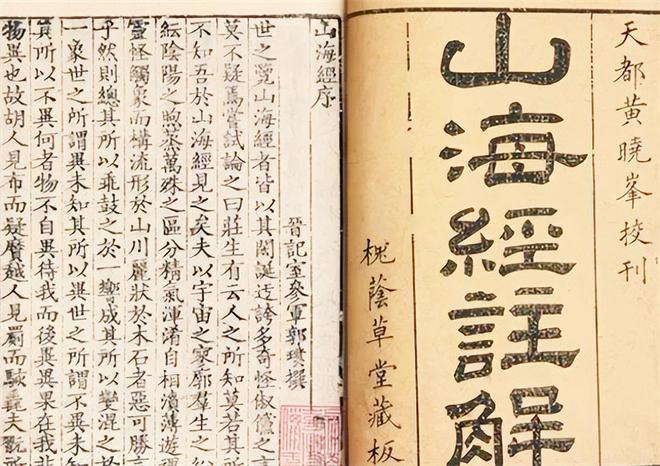 天都黃曉峯挍刊
山海經註解
槐蔭草堂藏板
山海經序
晉記室參軍郭璞撰
世之覽山海經者皆以其閎誕迂誇多奇怪俶儻之言
莫不疑焉嘗試論之曰莊生有云人之所知莫若其所
不知吾於山海經見之矣夫以宇宙之寥廓羣生之
紜陰陽之煦蒸萬殊之區分精氣渾淆自相濆薄遊
靈怪觸象而構流形於山川麗狀於木石者惡可勝言
乎然則總其所以乖鼓之於一響成其所以變混之
一象世之所謂異未知其所以異世之所謂不異
其所以不異何者物不自異待我而後異異果在我非
物異也故胡人見布而疑黂越人見罽而駭毳夫翫所